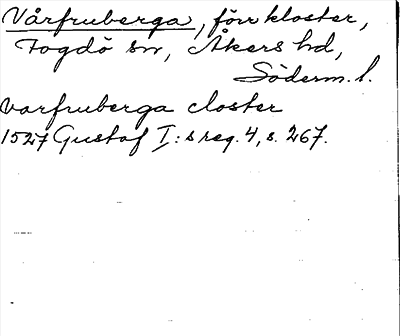 Vårfruberga, förr kloster,
Fogdö sn, Åkers hd,
Söderm. l.
varfruberga closter
1527 Gustaf I:s reg. 4, s. 267.